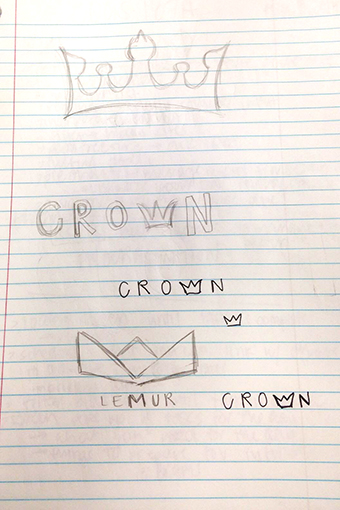 CROWN
CROWN
LEMUR
CROWN